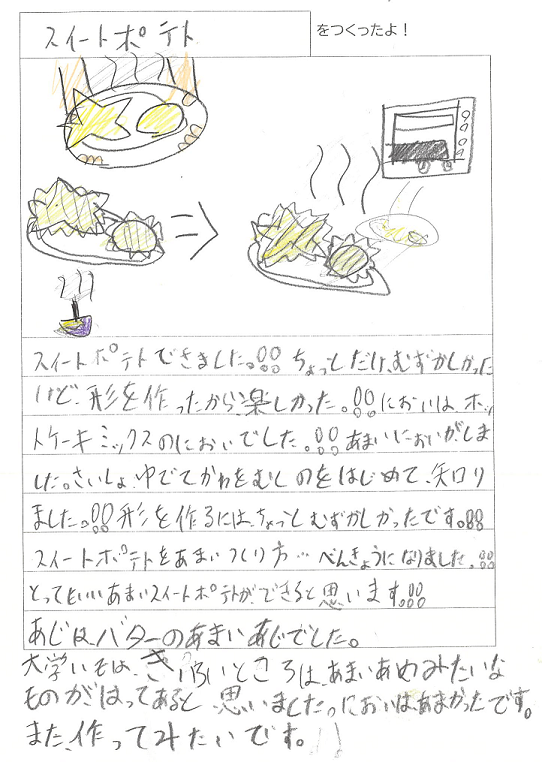 スイートポテト
をつくったよ！
スイートポテトできました。!!ちょっとだけ、むずかしかった
けど、形を作ったから、楽しかった。!!においは、ホッ
トケーキミックスのにおいでした。!!あまいにおいがしま
した。さいしょ、ゆでてかわをむしのをはじめて、知り
ました。!!形を作るには、ちょっとむずかしかったです。!!
スイートポテトをあまいつくり方…べんきょうになりました。!!
とってもいいあまいスイートポテトが、できると思います。!!
あじは、バターのあまいあじでした。
大学いもは、きいろいところは、あまいあめみたいな
ものがはってあると思いました。においは、あまかったです。
また、作ってみたいです。